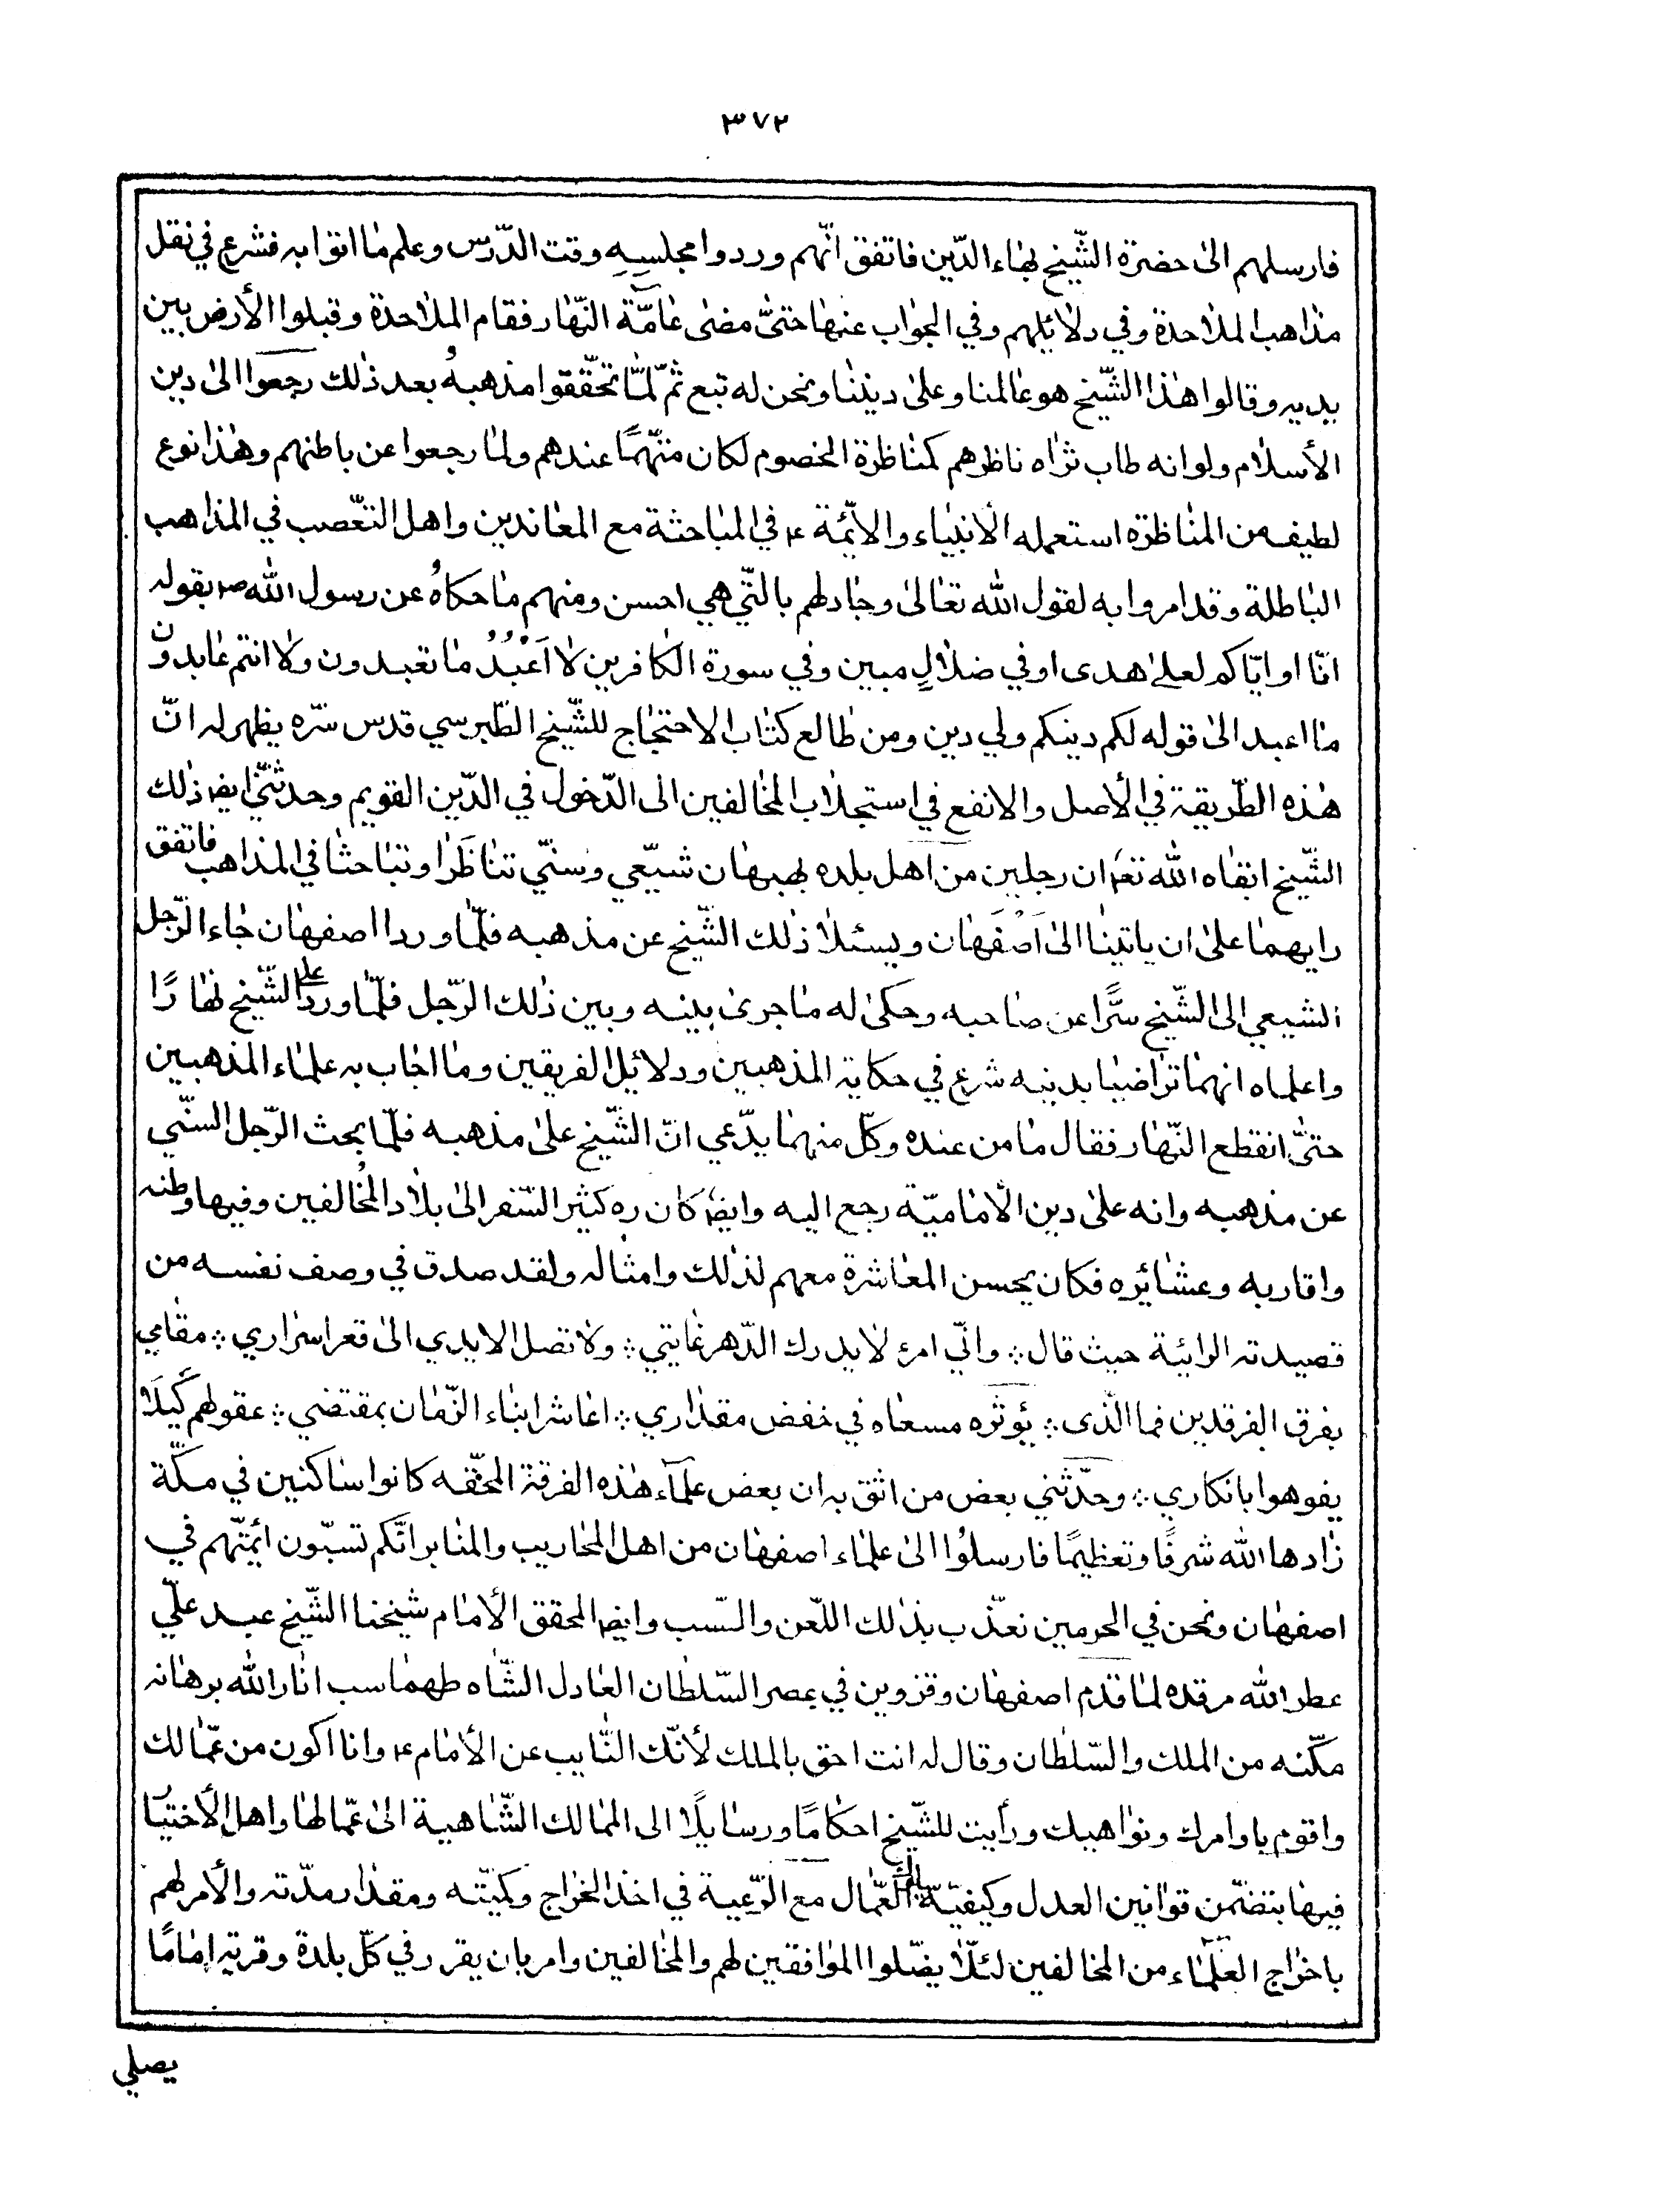 ٣٧٢
فارسلهم الىٰ حضرة الشّيخ بهٰاء الدّين فاتفق انّهم وردوا مجلسِهِ وقت الدّرس وعلم مٰا اتوا به فشرع في نقل
مذٰاهب الملٰاحدة وفي دلٰائلهم وفي الجوٰاب عنهٰا حتىّٰ مضىٰ عٰامّة النّهٰار فقام الملٰاحدة وقبلوا الأرض بين
يديه وقالوا هٰذا الشّيخ هو عٰالمنا وعلىٰ ديننٰا ونحن له تبع ثمّ لمّٰا تحقّقوا مذهبهُ بعد ذٰلك رجعوا الىٰ دين
الأسلٰام ولو انه طاب ثرٰاه ناظرهم كمنٰاظرة الخصوم لكان متّهمًا عندهم ولمٰا رجعوا عن باطنهم وهٰذا نوع
لطيف من المنٰاظرة استعمله الأنبيٰاء والأئمّة ع في المبٰاحثة مع المعٰاندين واهل التعّصب في المذٰاهب
البٰاطلة وقد امروا به لقول الله تعٰالىٰ وجٰادلهم بالتّي هي احسن ومنهم مٰا حكاهُ عن رسول الله ص بقوله
انّا او ايّاكم لعلىٰ هدى او في ضلٰالٍ مبين وفي سورة الكٰافرين لٰا اَعْبُدُ مٰا تعبدون ولٰا انتم عٰابدون
مٰا اعبد الىٰ قوله لكم دينكم ولي دين ومن طٰالع كتٰاب الاحتجٰاج للشّيخ الطّبرسي قدس سّره يظهر له انّ
هٰذه الطّريقة في الأصل والانفع في استجلٰاب المخٰالفين الى الدّخول في الدّين القويم وحدثنّي ايضا ذٰلك
الشّيخ ابقٰاه الله تعٰ ان رجلين من اهل بلده بهبهٰان شيّعي وسنيّ تنٰاظَرٰا وتبٰاحثٰا في المذٰاهب فاتفق
رايهمٰا علىٰ ان ياتينٰا الىٰ اَصْفَهٰان ويسئلٰا ذٰلك الشّيخ عن مذهبه فلمّٰا وردا اصفهٰان جٰاء الرّجل
الشيعي الىٰ الشّيخ سرًّا عن صٰاحبه وحكىٰ له مٰا جرىٰ بينه وبين ذٰلك الرّجل فلمّٰا وردا علىٰ الشّيخ نهٰارًا
واعلمٰاه انهمٰا ترٰاضيٰا بدينه شرع في حكاية المذهبين ودلائل الفريقين ومٰا اجٰاب به علمٰاء المذهبين
حتىّٰ انقطع النّهٰار فقال مٰا من عنده وكلّ منهمٰا يدّعي انّ الشّيخ علىٰ مذهبه فلمّا بحث الرّجل السنّي
عن مذهبه وانه علىٰ دين الأمٰاميّة رجع اليه وايضا كٰان ره كثير السّفر الىٰ بلٰاد المخُالفين وفيها وطنه
واقاربه وعشٰائره فكان يحسن المعٰاشرة معهم لذٰلك وامثٰاله ولقد صدق في وصف نفسه من
قصيدته الرائية حيث قال ؞ وانّي امرء لٰا يدرك الدّهر غٰايتي ؞ ولٰا تصل الايدي الىٰ قعر اسرٰاري ؞ مقٰامي
بفرق الفرقدين فما الّذى ؞ يؤثره مسعٰاه في خفض مقدٰاري ؞ اعٰاشر ابنٰاء الزّمٰان بمقتضي ؞ عقولهم كَيلَا
يفوهوا بانكاري ؞ وحدّثني بعض من اثق به ان بعض علمٓاء هٰذه الفرقة المحقّه كانوا سٰاكنين في مكّة
زٰادها الله شرفًا وتعظيمًا فارسلُوا الىٰ علمٰاء اصفهٰان من اهل المحٰاريب والمنٰابر انّكم تسبّون ائمتّهم في
اصفهٰان ونحن في الحرمين نعذّب بذٰلك اللّعن والسّب وايضا المحقق الأمٰام شيخنا الشّيخ عبد عليّ
عطر الله مرقده لمٰا قدم اصفهٰان وقزوين في عصر السّلطٰان العٰادل الشّٰاه طهمٰاسب انٰار الله برهٰانه
مكّنه من الملك والسّلطان وقال له انت احق بالملك لأنّك النّٰايب عن الأمٰام ع وانا اكون من عمّٰالك
واقوم باوامرك ونوٰاهيك ورأيت للشّيخ احكامًا ورسٰايلًا الى الممٰالك الشّٰاهية الىٰ عمّالهٰا واهل الأختيٰار
فيهٰا بتضمّن قوٰانين العدل وكيفيّة سلوك العّمٰال مع الرّعية في اخذ الخرٰاج وكميّته ومقدٰار مدّته والأمر لهم
باخرٰاج العلمٰاء من المخٰالفين لئلّٰا يضّلوا الموٰافقين لهم والمخٰالفين وامر بان يقرر في كلّ بلدة وقرية امٰامًا
يصلي